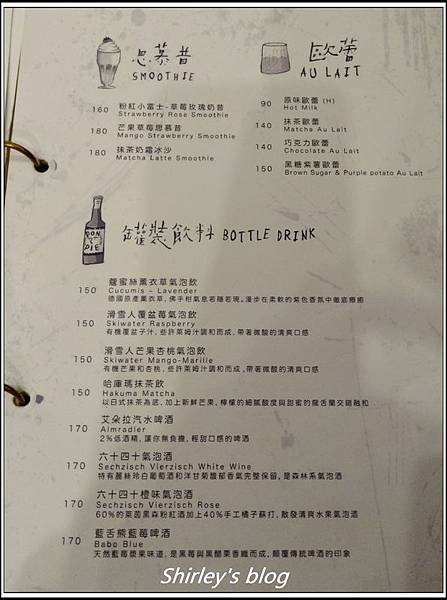 思慕昔
SMOOTHIE
160 粉紅小富士-草莓玫瑰奶昔
Strawberry Rose Smoothie
180 芒果草莓思慕昔
Mango Strawberry Smoothie
180 抹茶奶霜冰沙
Matcha Latte Smoothie
歐蕾
AU LAIT
90 原味歐蕾 (H)
Hot Milk
140 抹茶歐蕾
Matcha Au Lait
140 巧克力歐蕾
Chocolate Au Lait
150 黑糖紫薯歐蕾
Brown Sugar & Purple potato Au Lait
罐裝飲料 BOTTLE DRINK
150 蔻蜜絲薰衣草氣泡飲
Cucumis – Lavender
德國原產薰衣草,佛手柑氣息若隱若現。漫步在柔軟的紫色香氛中徹底療癒
150 滑雪人覆盆莓氣泡飲
Skiwater Raspberry
有機覆盆子汁,些許萊姆汁調和而成,帶著微酸的清爽口感
150 滑雪人芒果杏桃氣泡飲
Skiwater Mango-Marille
有機芒果和杏桃,些許萊姆汁調和而成,帶著微酸的清爽口感
150 哈庫瑪抹茶飲
Hakuma Matcha
以日式抹茶為底,加上新鮮芒果,檸檬的細膩酸度與甜蜜的龍舌蘭交錯融和
170 艾朵拉汽水啤酒
Almradler
2%低酒精,讓你無負擔,輕甜口感的啤酒
170 六十四十氣泡酒
Sechzisch Vierzisch White Wine
特有麗絲玲白葡萄酒和洋甘菊馥郁香氣完整保留,是森林系氣泡酒
170 六十四十橙味氣泡酒
Sechzisch Vierzisch Rose
60%的萊茵黑森粉紅酒加上40%手工橘子蘇打,散發清爽水果氣泡酒
170 藍舌熊藍莓啤酒
Babo Blue
天然藍莓漿果味道,是黑莓與黑醋栗香織而成,顛覆傳統啤酒的印象
Shirley's blog